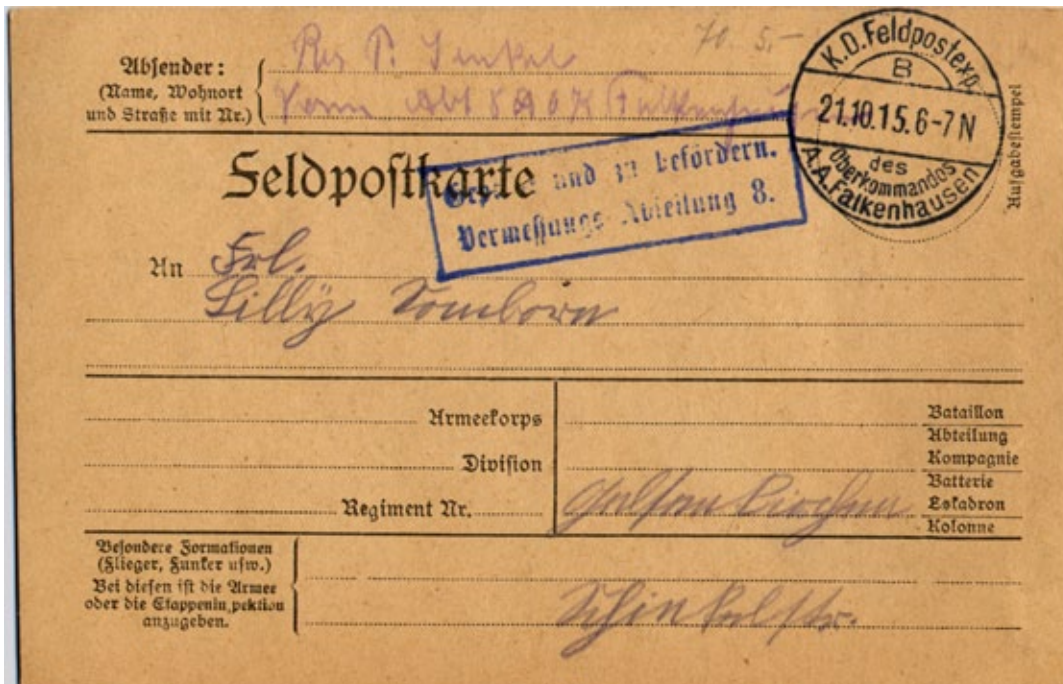 70. 5,-
Absender:
(Name, Wohnort
und Straße mit Nr.)
Res
Abt 8 A O K Falkenhausen
K.D. Feldpostexp.
B
21.10.15. 6-7 N
des
Oberkommandos
A.A. Falkenhausen
Aufgabestempel
Feldpostkarte
und zu befördern.
Vermessungs-Abteilung 8.
An Frl.
Lilly Somborn
Armeekorps
Division
Regiment Nr.
Bataillon
Abteilung
Kompagnie
Batterie
Gelsenkirchen
Eskadron
Kolonne
Besondere Formationen
(Flieger, Funker usw.)
Bei diesen ist die Armee
oder die Etappeninspektion
anzugeben.
Schinkelstr.